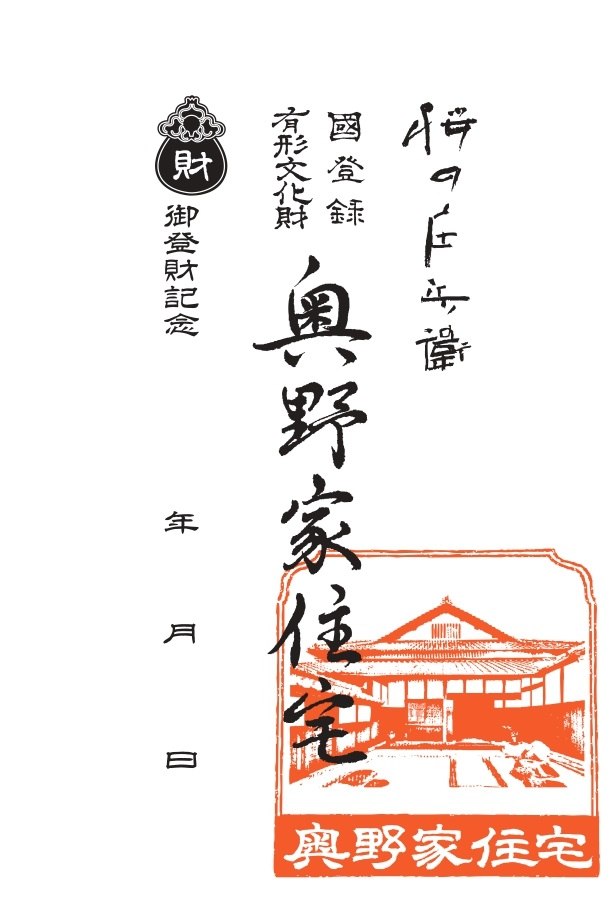 桜の庄兵衛
國登録
有形文化財
奥野家住宅
財
御登財記念
年 月 日
奥野家住宅